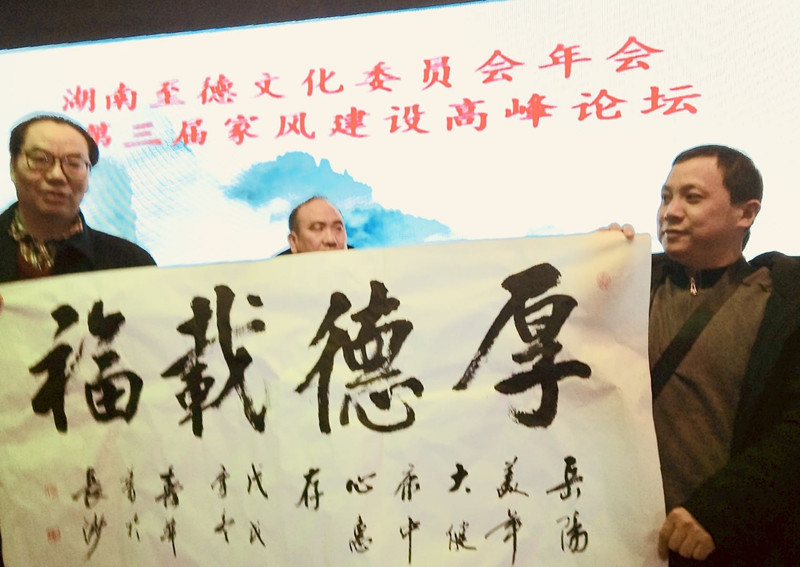 湖南至德文化委员会年会
第三届家风建设高峰论坛
厚德載福
岳陽
美年
大健
康中
心惠
存
戊戌
華
書於
長沙